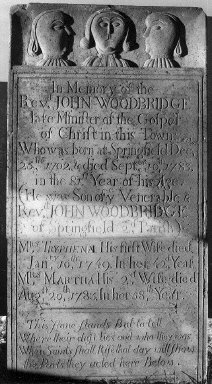 In Memory of the
Rev. JOHN WOODBRIDGE
late Minister of the Gospel
of Christ in this Town
Who was born at Springfield Dec.
25th 1702, & died Sept. 10, 1783.
in the 81st Year of his Age.
(He was Son of ye Venerable &
Rev. JOHN WOODBRIDGE
of Springfield
Mrs TRYPHENA His first Wife died
Jany 10th 1749. In her 42 Year.
Mrs MARTHA His 2d Wife died
Aug. 1783 In her Year.
This stone stands But to tell
Where their dust lies
When Saints shall Rise that day will show
the Parts they acted here Below.